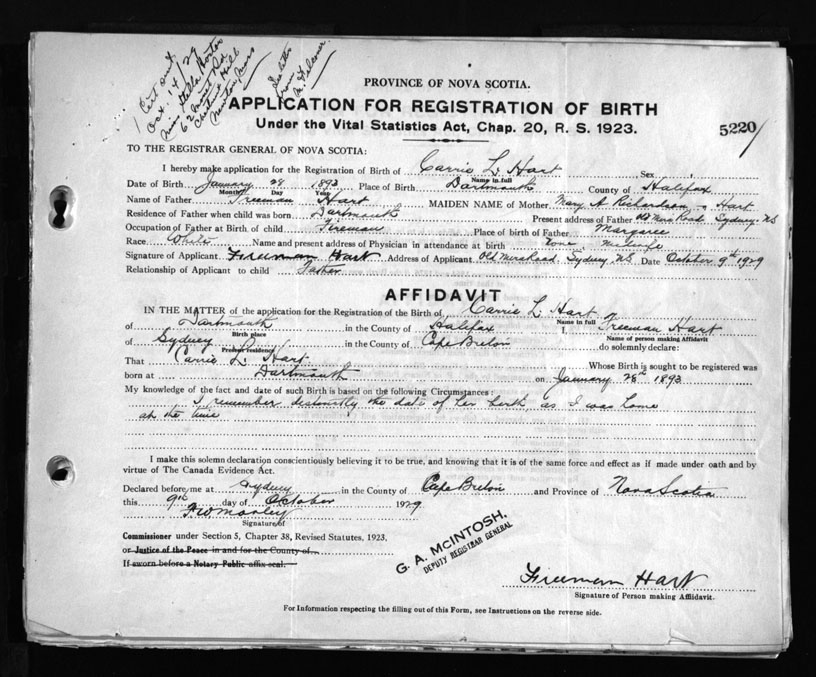 1 Cert sent
Oct. 14/29
Miss Stella Horton
62 Rd.
Chestnut Hill
Newton, Mass
See letter
from
M. Falconer
PROVINCE OF NOVA SCOTIA.
APPLICATION FOR REGISTRATION OF BIRTH
Under the Vital Statistics Act, Chap. 20, R. S. 1923.
5220/
TO THE REGISTRAR GENERAL OF NOVA SCOTIA:
I hereby make application for the Registration of Birth of Carrie L. Hart Sex
Name in full
Date of Birth January 28 1893 Place of Birth Dartmouth County of Halifax
Month Day Year
Name of Father Freeman Hart MAIDEN NAME of Mother Mary A Richardson Hart
Residence of Father when child was born Dartmouth Present address of Father Old Mira Road, Sydney, N.S
Occupation of Father at Birth of child Fireman Place of birth of Father Margaree
Race White Name and present address of Physician in attendance at birth Midwife
Signature of Applicant Freeman Hart Address of Applicant Old Mira Road Sydney, N.S Date October 9th 1929
Relationship of Applicant to child Father
AFFIDAVIT
IN THE MATTER of the application for the Registration of the Birth of Carrie L Hart
Name in full
of Dartmouth in the County of Halifax I Freeman Hart
Birth place Name of person making Affidavit
of Sydney in the County of Cape Breton do solemnly declare:
Present residency
That Carrie L Hart Whose Birth is sought to be registered was
born at Dartmouth on January 28th 1893
My knowledge of the fact and date of such Birth is based on the following Circumstances:
I remember distinctly the date of her birth, as I was home
at the time
I make this solemn declaration conscientiously believing it to be true, and knowing that it is of the same force and effect as if made under oath and by
virtue of The Canada Evidence Act.
Declared before me at Sydney in the County of Cape Breton and Province of Nova Scotia
this 9th day of October 1929
Signature of
Commissioner under Section 5, Chapter 38, Revised Statutes, 1923.
or Justice of the Peace in and for the County of
If sworn before a Notary Public affix seal.
G. A. MCINTOSH,
DEPUTY REGISTRAR GENERAL
Freeman Hart
Signature of Person making Affidavit.
For Information respecting the filling out of this Form, see Instructions on the reverse side.